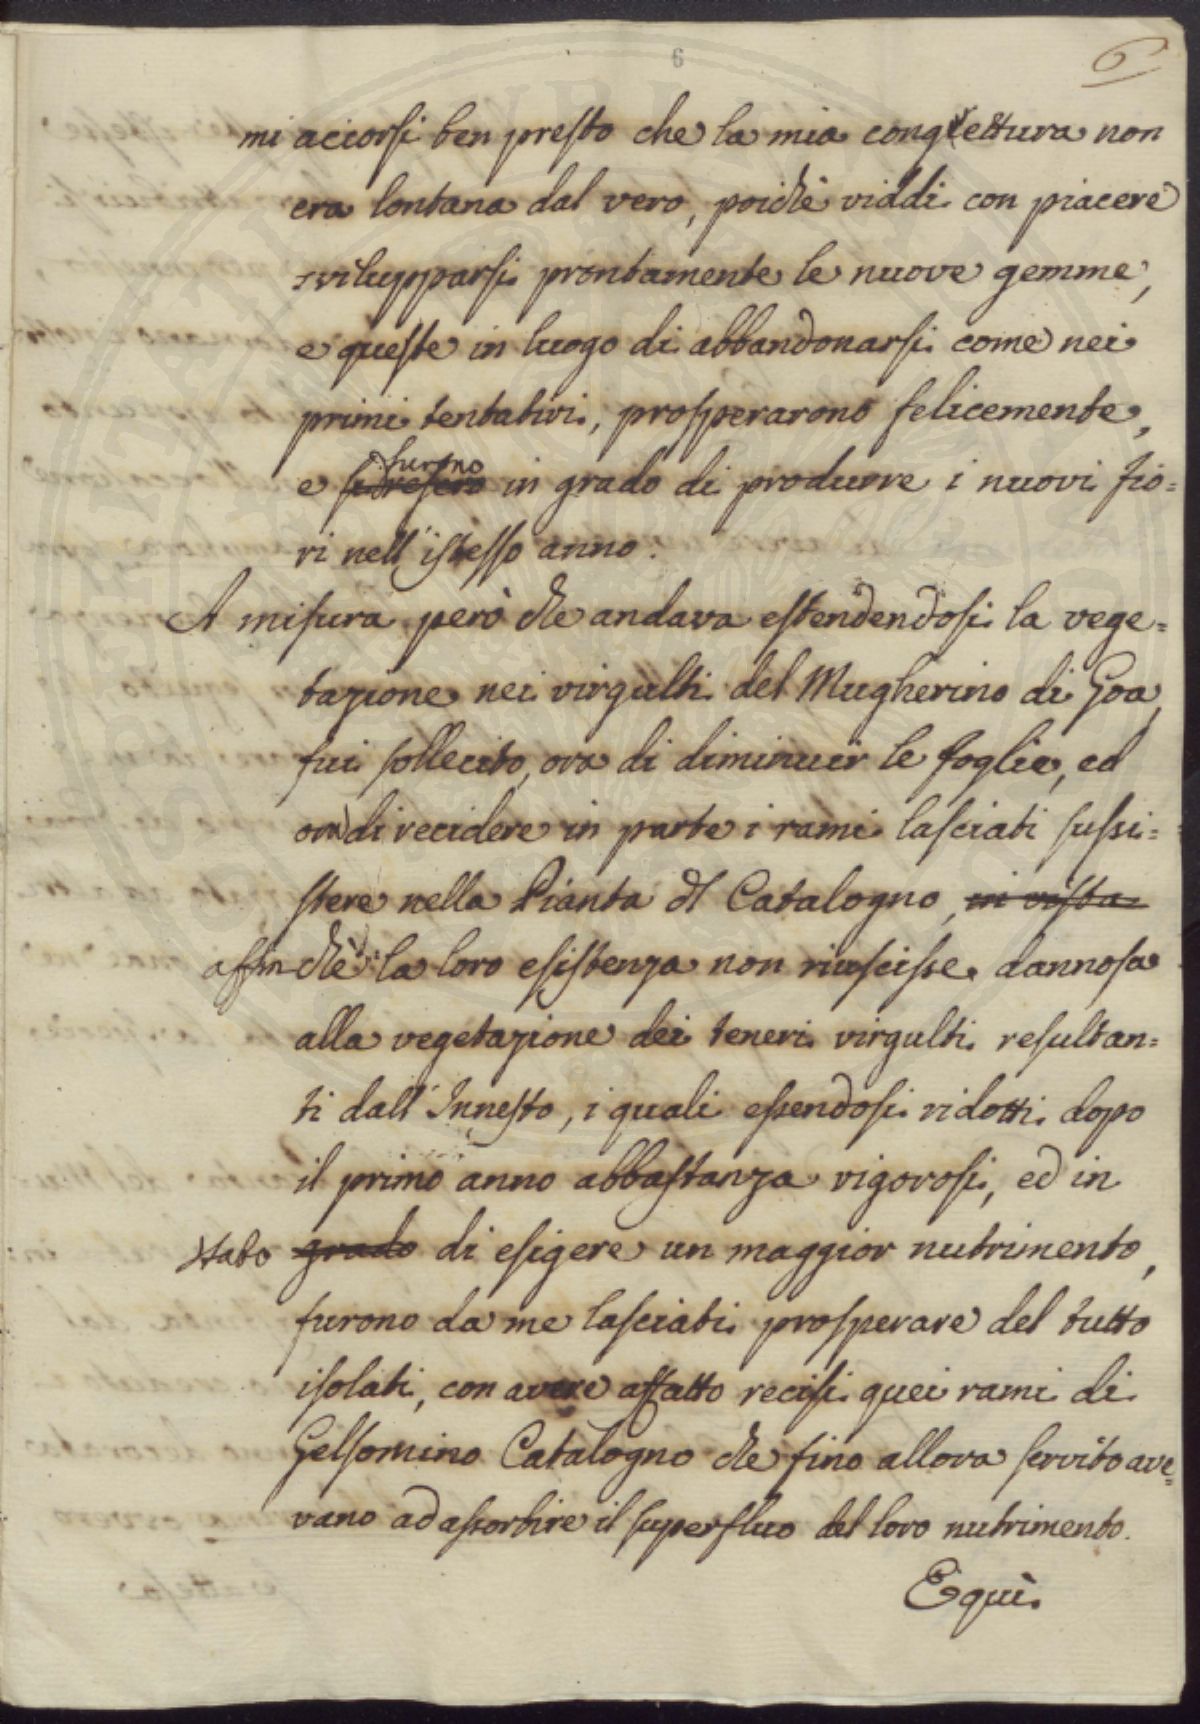 6
6
mi accorsi ben presto che la mia congettura non
era lontana dal vero, poichè viddi con piacere
svilupparsi prontamente le nuove gemme,
e queste in luogo di abbandonarsi come nei
primi tentativi, prosperarono felicemente,
furono
e si resero in grado di produrre i nuovi fio=
ri nell'istesso anno.
A misura però che andava estendendosi la vege=
tazione nei virgulti del Mugherino di Goa,
fui sollecito, ora di diminuir le foglie, ed
ora di recidere in parte i rami lasciati sussi=
stere nella Pianta di Catalogno, in vista=
affin-chè la loro esistenza non riuscisse dannosa
alla vegetazione dei teneri virgulti resultan=
ti dall'Innesto, i quali essendosi ridotti dopo
il primo anno abbastanza vigorosi, ed in
stato grado di esigere un maggior nutrimento,
furono da me lasciati prosperare del tutto
isolati, con avere affatto recisi quei rami di
Gelsomino Catalogno che fino allora servito ave=
vano ad assorbire il superfluo del loro nutrimento.
E quì